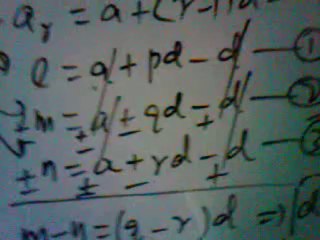 a_r = a + (r-1)d
l = a + pd - d — ①
m = a + qd - d — ②
n = a + rd - d — ③
m-n = (q-r)d =>